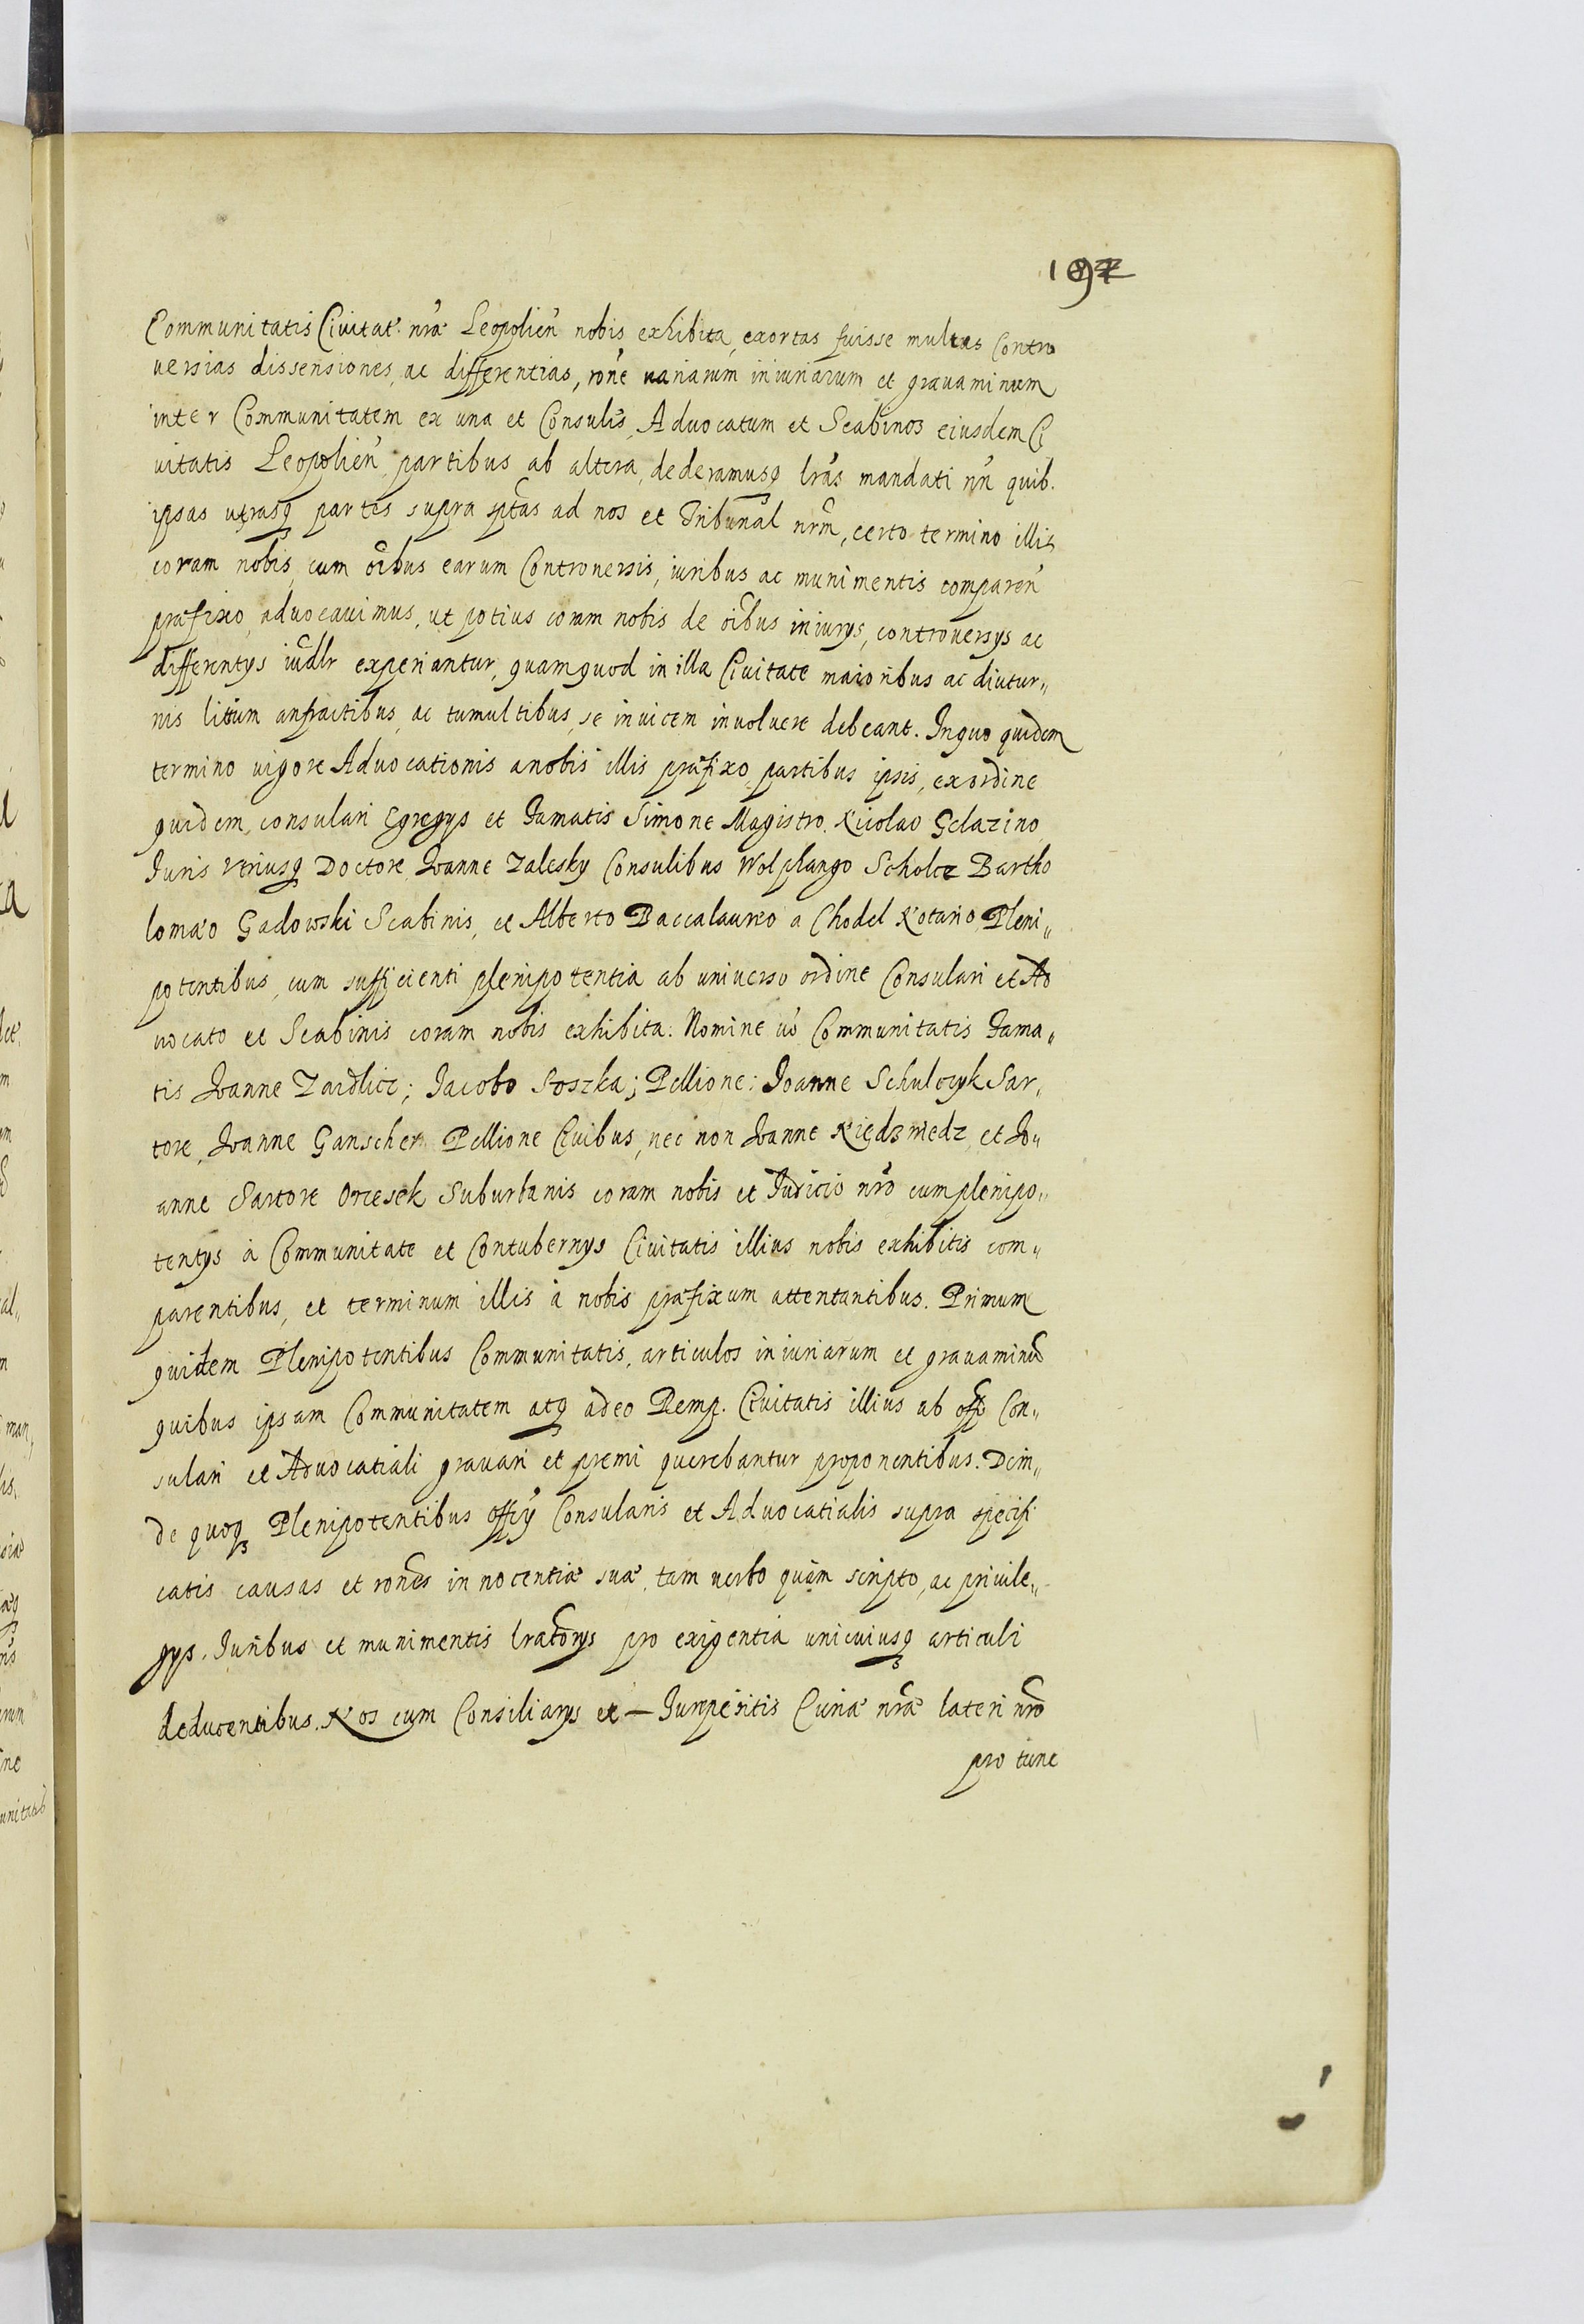 Communitatis Ciuitat. nrã Leopolień nobis exhibita, exortas fuisse multas Contro
uersias dissensiones, ac differentias, rõne uariarum iniuriarum et grauaminum
inter Communitatem ex una et Consules, Aduocatum et Scabinos eiusdem Ci
uitatis Leopolień partibus ab altera, dederamusq lras mandati nri quib.
ipsas utrasq partes supra sptas ad nos et Tribunal nrm, certo termino illis
coram nobis, cum oibus earum Controuersis, iuribus ac munimentis comparen
præfixo, aduocauimus, ut potius coram nobis de oibus iniurys, controuersys ac
differentys iudlr experiantur, quamquod in illa Ciuitate maioribus ac diutur„
nis litium anfractibus, ac tumultibus, se inuicem inuoluere debeant. Inquo quidem
termino uigore Aduocationis anobis illis præfixo, partibus ipsis, exordine
quidem, consulari Egregys et Famatis Simone Magistro. Nicolao Gelazino
Juris Vtriusq Doctore, Joanne Zalesky Consulibus Wolphango Scholcz Bartho
lomæo Gadowski Scabinis, et Alberto Baccalaureo a Chodel Notario, Pleni„
potentibus, cum sufficienti plenipotentia ab uniuerso ordine Consulari et Ad
uocato et Scabinis coram nobis exhibita. Nomine uo Communitatis Fama„
tis Joanne Zaidlicz; Jacobo Soszka; Pellione; Joanne Schulczyk Sar„
tore, Joanne Ganscher Pellione Ciuibus, nec non Joanne Niedzwiedz, et Jo„
anne Sartore Orzesek Suburbanis coram nobis et Judicio nro cumplenipo„
tentys à Communitate et Contubernys Ciuitatis illius nobis exhibitis com„
parentibus, et terminum illis à nobis præfixum attentantibus. Primum
quidem Plenipotentibus Communitatis, articulos iniuriarum et grauaminu
quibus ipsam Communitatem atq adeo Remp. Ciuitatis illius ab offo Con„
sulari et Aduocatiali grauari et premi querebantur proponentibus. Dein„
de quoq Plenipotentibus Offcy Consularis et Aduocatialis supra specifi
catis causas et rones innocentiæ suæ, tam uerbo quàm scripto, ac priuile„
gys. Juribus et munimentis lratorys pro exigentia uniuiusq articuli
deducentibus. Nos cum Consiliarys et — Jurisperitis Curiæ nræ lateri nro
pro tunc